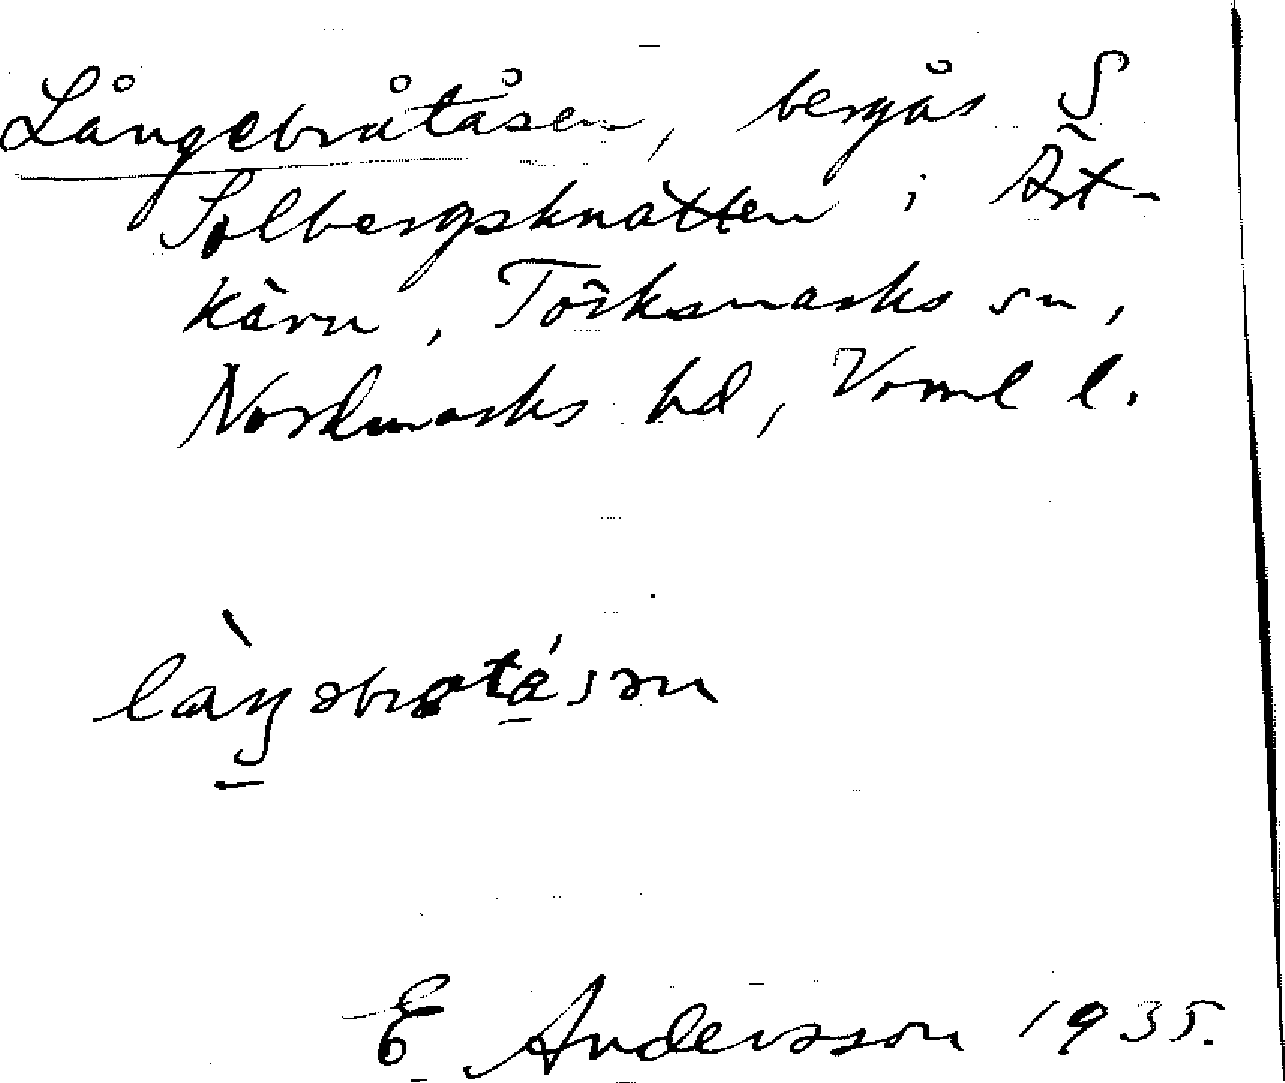 Långebråtåsen, bergås S
Solbergsknatten i Öst-
kärn, Töcksmarks sn,
Nordmarks hd, Vrml l.
E Andersson 1935.